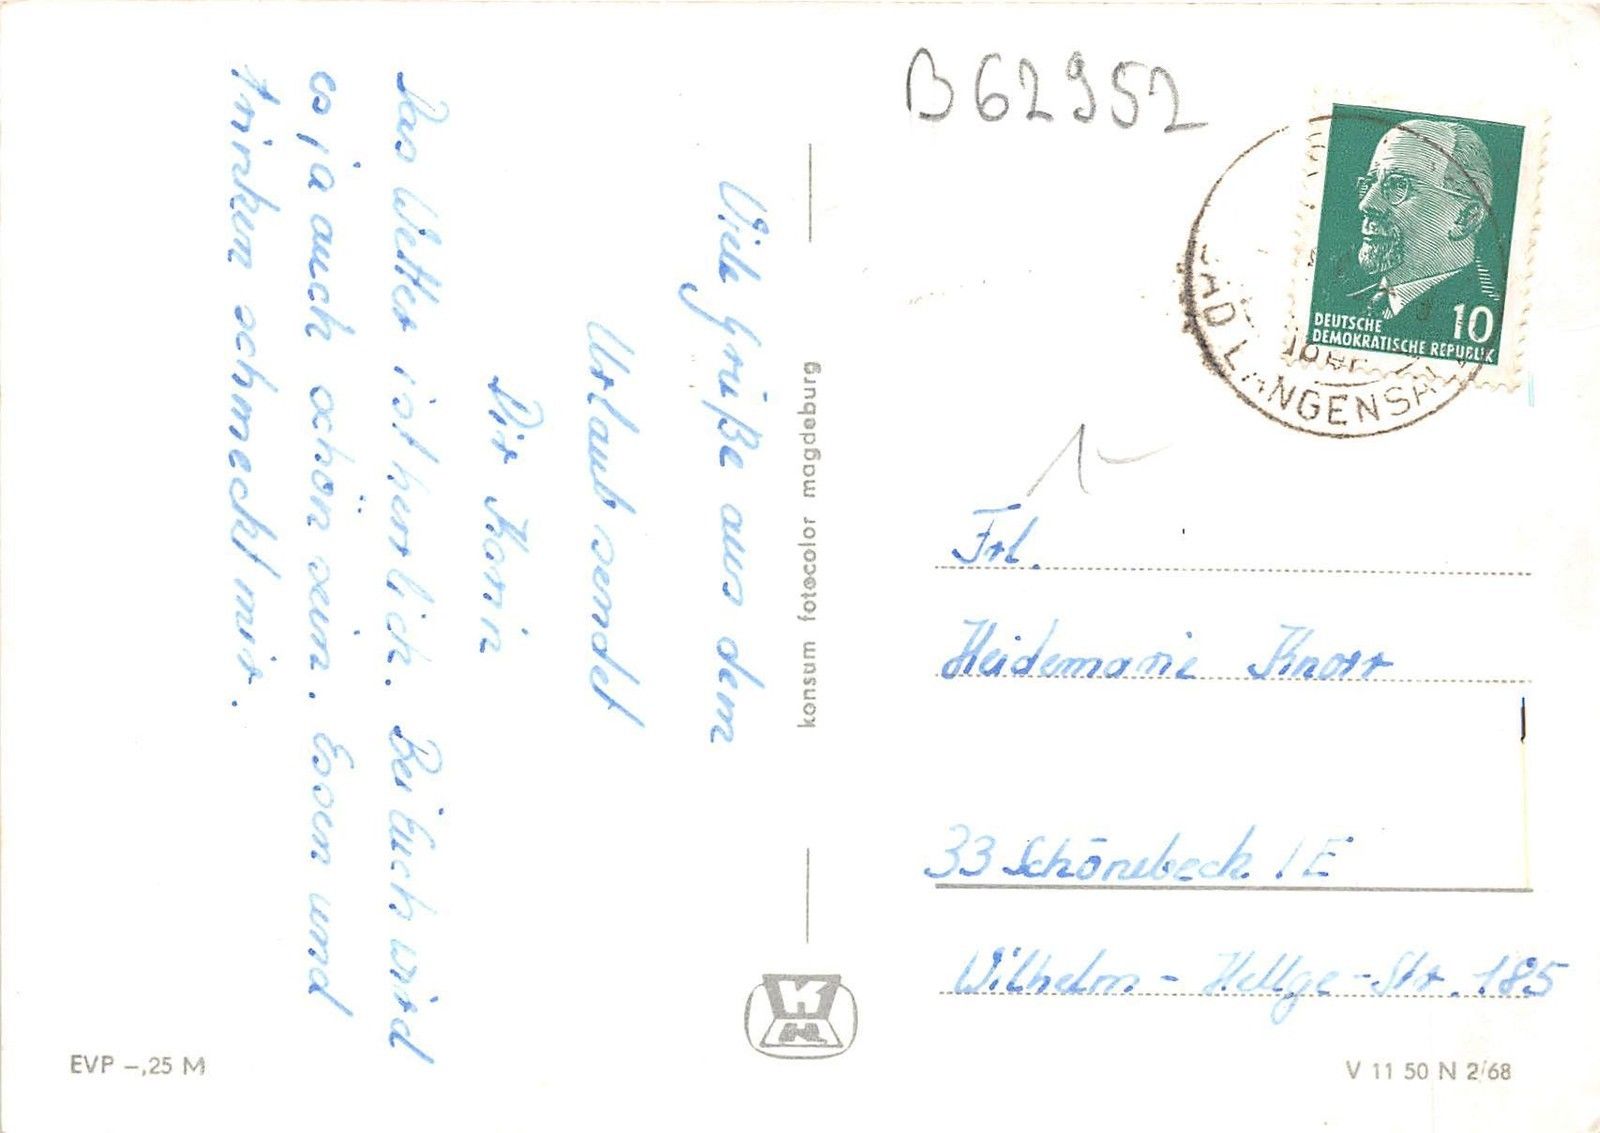 Viele Grüße aus dem
Urlaub sendet
Dir Karin
Das Wetter ist herrlich. Bei Euch wird
es ja auch schön sein. Essen und
trinken schmeckt mir.
konsum fotocolor magdeburg
EVP –,25 M
B 62952
DEUTSCHE
DEMOKRATISCHE REPUBLIK
10
BAD LANGENSALZA
Frl.
Heidemarie Knorr
33 Schönebeck / E
Wilhelm-Hellge-Str. 185
V 11 50 N 2/68